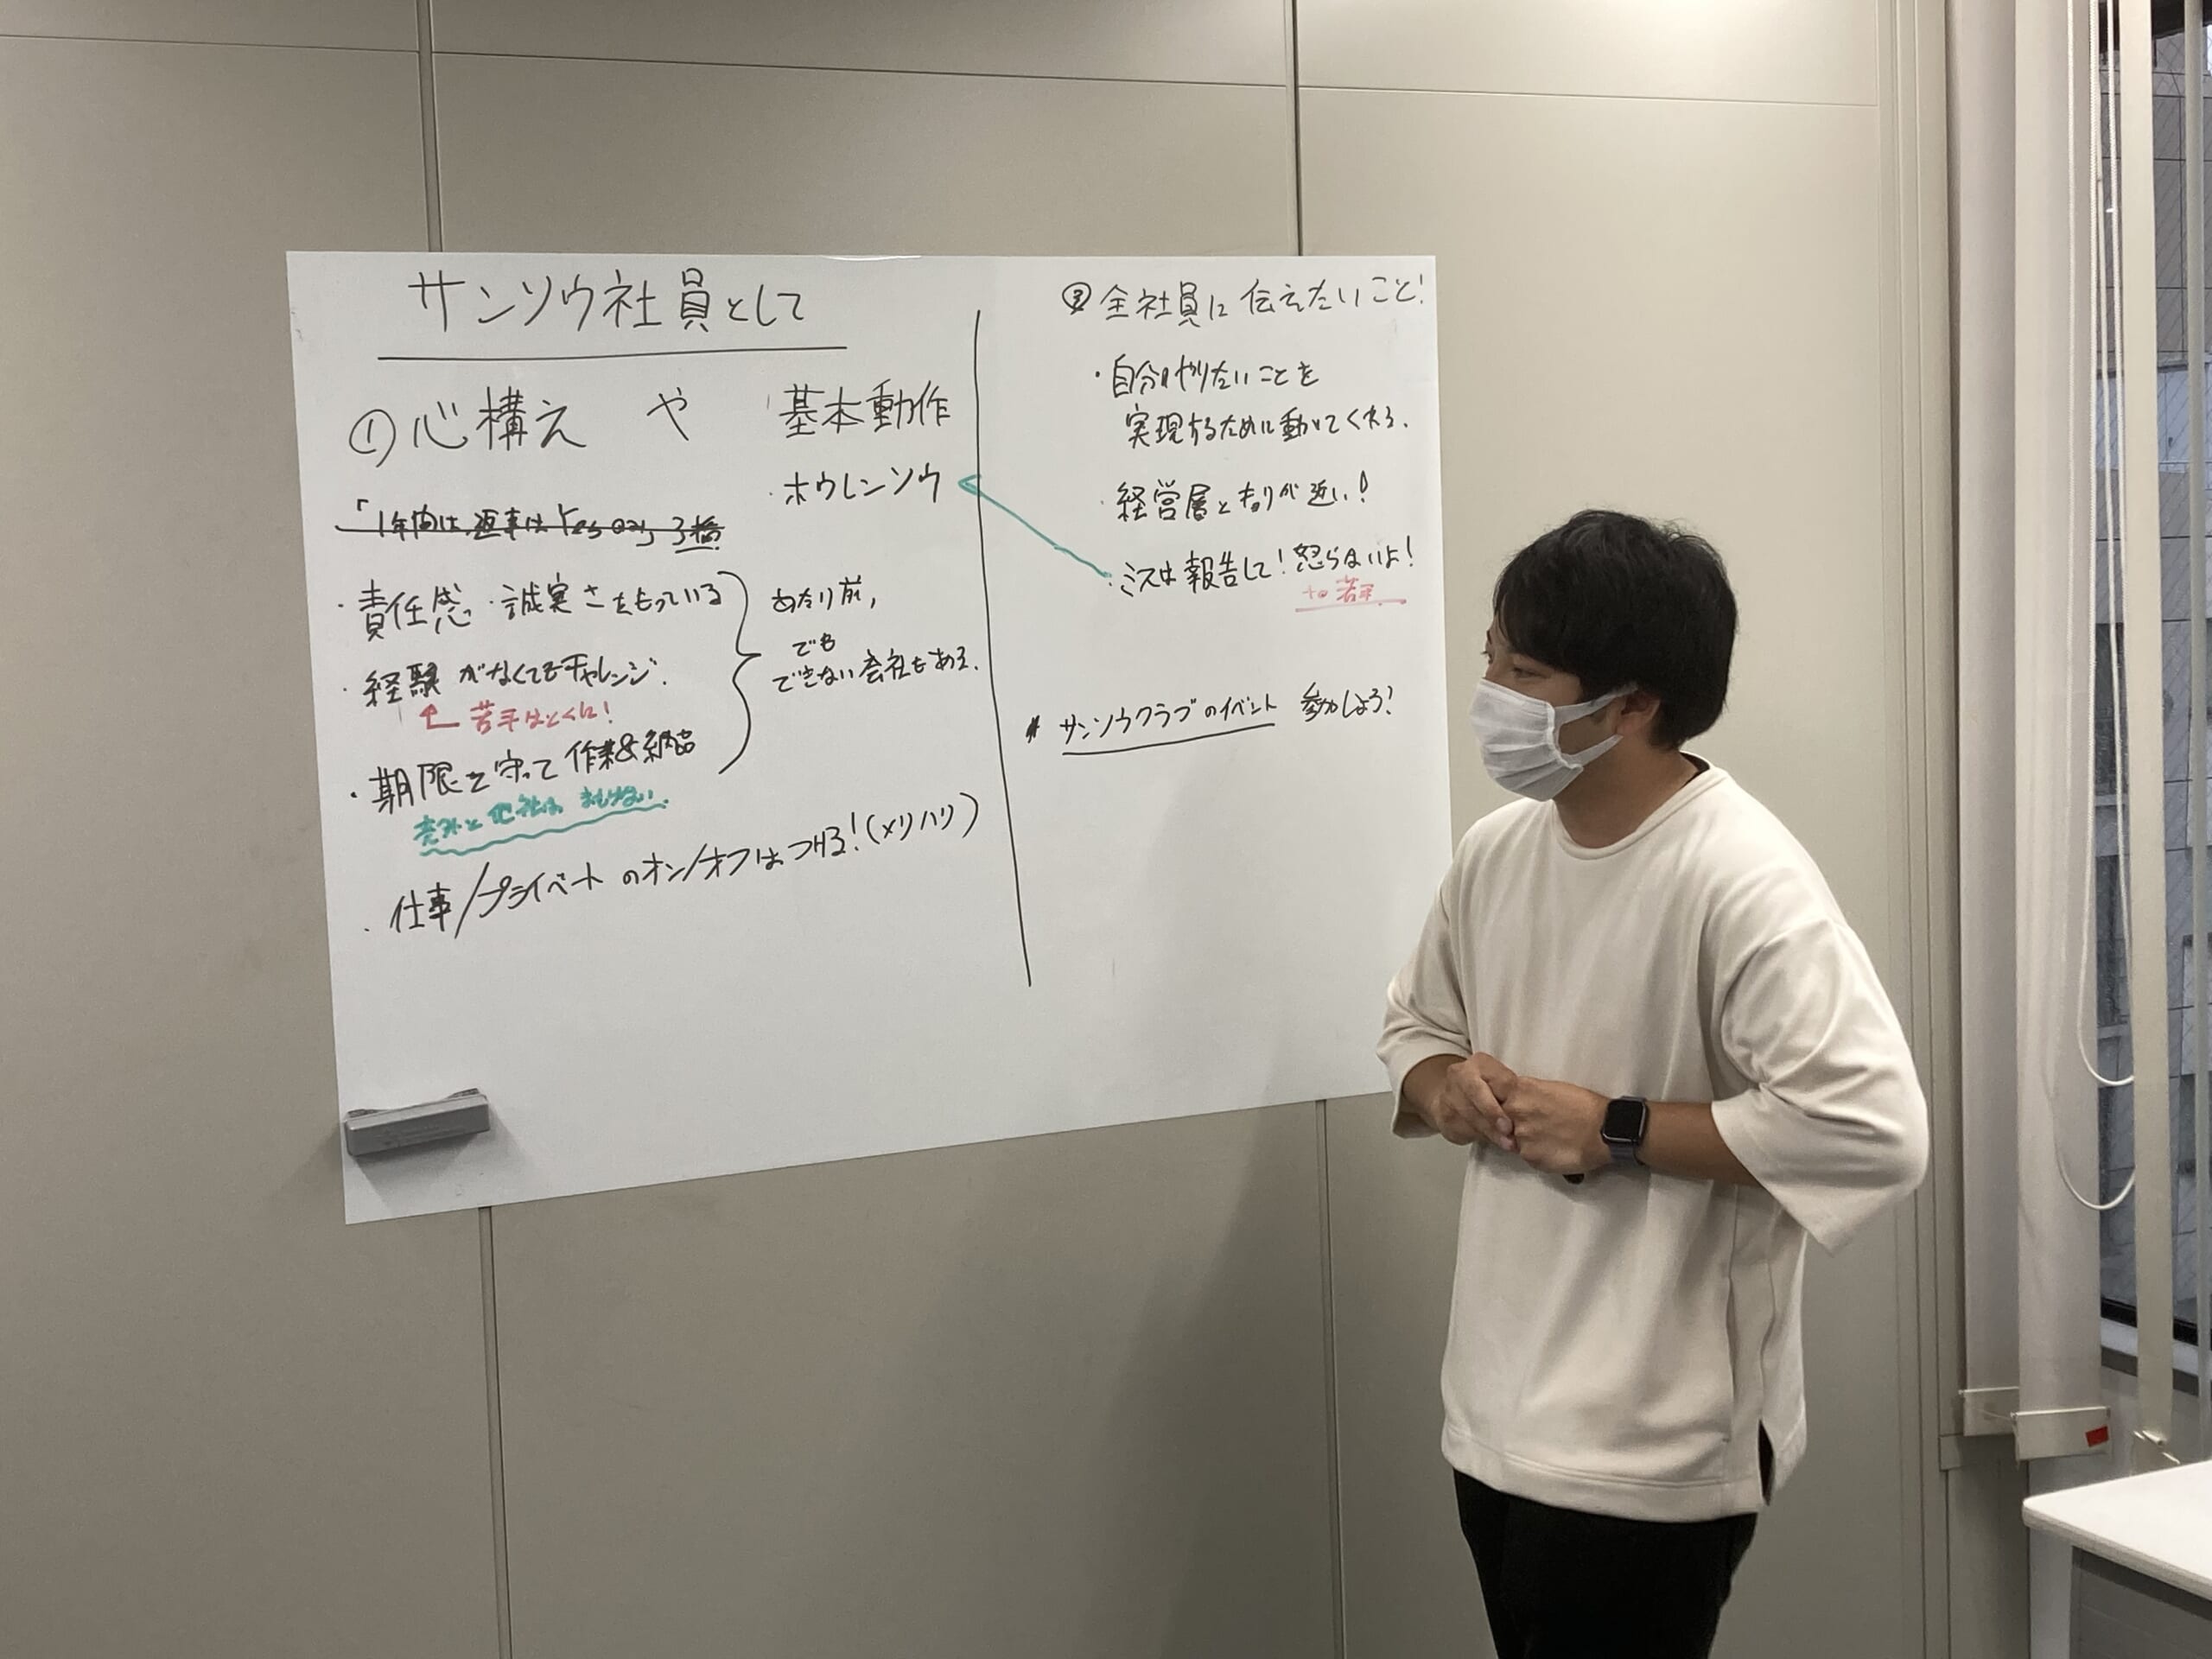 サンソウ社員として
①心構え や 基本動作
・ホウレンソウ
「1年間は返事はYes
・責任感・誠実さをもっている
・経験がなくてもチャレンジ.
若手はとくに!
・期限を守って作業&納品
意外と他社は
あたり前,
でも
できない会社もある.
・仕事/プライベートのオン/オフはつける!(メリハリ)
②全社員に伝えたいこと!
・自分のやりたいことを
実現するために動いてくれる.
・経営層とキョリが近い!
・ミスは報告して!怒らないよ!
to 若手
サンソウクラブのイベント 参加しよう!